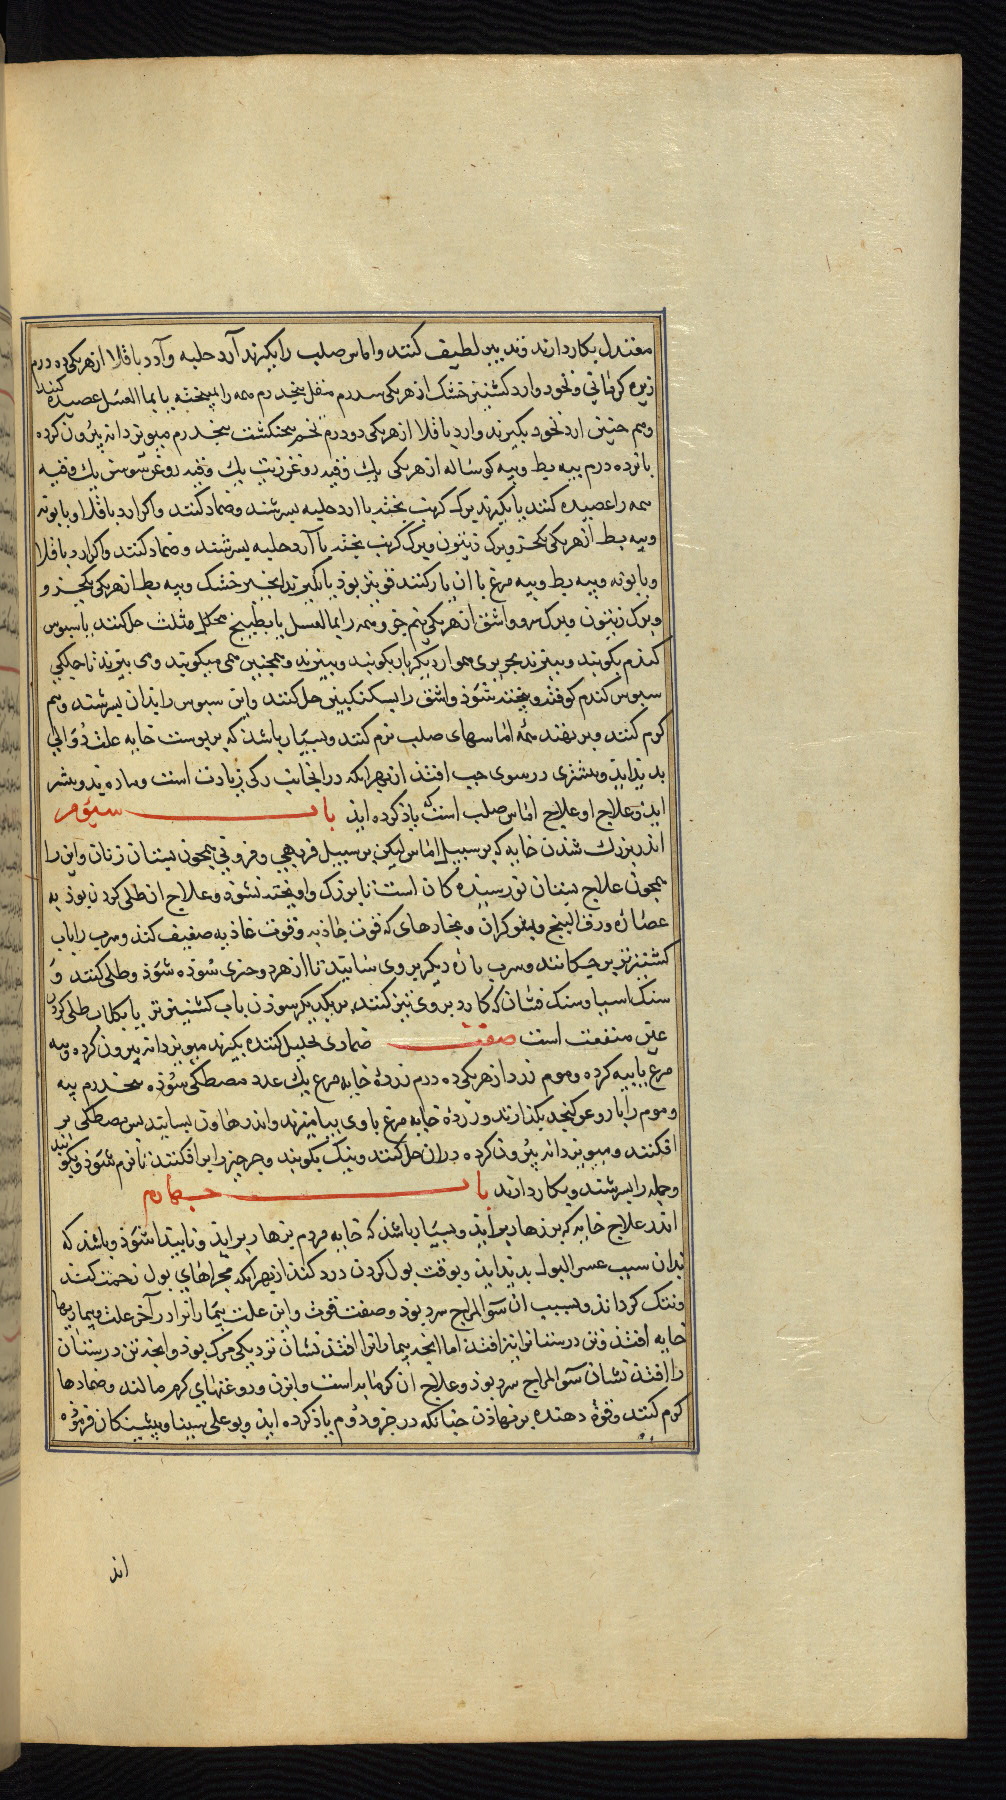 معتدل بکار دارند و تدبیر لطیف کنند و اماس صلب را بکیرند آرد حلبه و آرد باقلا از هر یکی ده درم
زیره کرمانی و نخود و ارد کشنیز خشک از هر یکی سدرم مقل پنجدرم همه را بپخته با ماالعسل عصیده کنند
و هم چنین ارد نخود بکیرند و ارد باقلا از هر یکی دو درم تخم پنجنکشت پنجدرم میویز دانه بیرون کرده
پانزده درم پیه بط و پیه کوساله از هر یکی یک وقیه روغن زیت یک وقیه روغن سوسن یک وقیه
همه را عصیده کنند یا بکیرند برک کرنب پخته با ارد حلبه بسرشند و ضماد کنند و اکر ارد باقلا و بابونه
و پیه بط از هر یکی یکجزو برک زیتون و برک کرنب پخته با آرد حلبه بسرشند و ضماد کنند و اکر ارد باقلا
و بابونه و پیه بط و پیه مرغ با ان یار کنند قویتر بوذ یا بکیرند انجیر خشک و پیه بط از هر یکی یکجزو
و برک زیتون و برک سرو و اشق از هر یکی نیم جزو همه را بماالعسل یا بطبیخ مثلث حل کنند یا سبوس
کندم بکوبند و ببیزند بحریری هموار دیکر بار بکوبند و ببیزند و همچنین همی میکوبند و می بیزند تا جملکی
سبوس کندم کوفته و بیخته شوذ و اشق را بسکنکبین حل کنند و این سبوس را بدان بسرشند و هم
کرم کنند و بر نهند همه اماسهای صلب نرم کنند و بسیار باشذ که بر پوست خایه علت دوالی
بدید اید و بیشتری در سوی چپ افتذ از بهر انکه در انجانب رکی زیادت است و ماده بدو بیشتر
ایذ و علاج او علاج اماس صلب است که یاذ کرده ایذ باب سیوم
اندر بزرک شذن خایه که بر سبیل اماس لیکن بر سبیل فربهی و فزونی همچون پستان زنان و این را
همچون علاج پستان نورسیده کان است تا بزرک و اویخته نشوذ و علاج ان طلی کردن بوذ به
عصاره ورق البنج و شوکران و بخارهای که قوت جاذبه و قوت غاذیه ضعیف کند و سرب را باب
کشنیز تر بر حکانند و سرب پاره دیکر بر وی سایند تا از هر دو چیزی سوذه شوذ و طلی کنند و
سنک اسیا و سنک فسان که کارد بر وی تیز کنند بر یکدیکر سوذن باب کشنیز تر یا بکلاب طلی کردن
عین منفعت است صفت ضمادی تحلیل کننده بکیرند میویز دانه بیرون کرده و پیه
مرغ یا پیه کرده و موم زرد از هر یکی ده درم زردهٔ خایه مرغ یک عدد مصطکی سوذه پنجدرم پیه
و موم را با روغن کنجد بکدازند و زردهٔ خایه مرغ با وی بیامیزند و اندر هاون بسایند پس مصطکی بر
افکنند و میویز دانه بیرون کرده دران حل کنند و نیک بکوبند و چرب چیز را بر افکنند تا نرم شوذ و بکوبند
و جمله را بسرشند و بکار دارند باب چهارم
اندر علاج خایه که بر زهار بر آیذ و بسیار باشذ که خایه مردم بزهار بر ایذ و نابیدا شوذ و باشذ که
بدان سبب عسر البول بدید ایذ و بوقت بول کردن درد کند از بهر انکه مجراهای بول زحمت کند
و تنک کرداند و سبب ان سو المزاج سرد بوذ و ضعف قوت و این علت بیماران را در آخر علت و بیماریها
خایه افتذ و تن درستان را نیز افتذ اما انچه بیماران را افتذ نشان نزدیکی مرک بوذ و انچه تن درستان
را افتذ نشان سو المزاج سرد بوذ و علاج ان کرمابه است و ابزن و روغنهای کرم مالند و ضمادها
کرم کنند و قوة دهنده بر نهاذن چنانکه در جزو دوم یاذ کرده ایذ و بوعلی سینا و پیشینکان فرموذه
اند